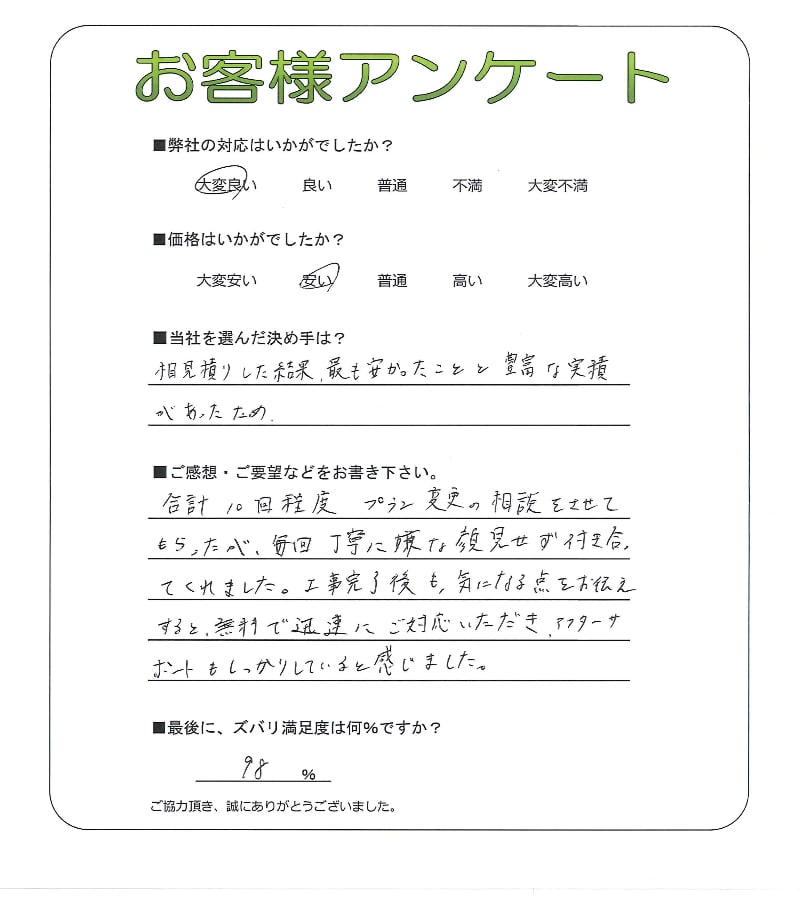 お客様アンケート
■弊社の対応はいかがでしたか？
大変良い 良い 普通 不満 大変不満
■価格はいかがでしたか？
大変安い 安い 普通 高い 大変高い
■当社を選んだ決め手は？
相見積りした結果、最も安かったことと豊富な実積
があったため.
■ご感想・ご要望などをお書き下さい。
合計10回程度 プラン変更の相談をさせて
もらったが、毎回丁寧に嫌な顔見せず付き合っ
てくれました。工事完了後も、気になる点をお伝え
すると、無料で迅速にご対応いただき、アフターサ
ポートもしっかりしていると感じました。
■最後に、ズバリ満足度は何％ですか？
98 ％
ご協力頂き、誠にありがとうございました。